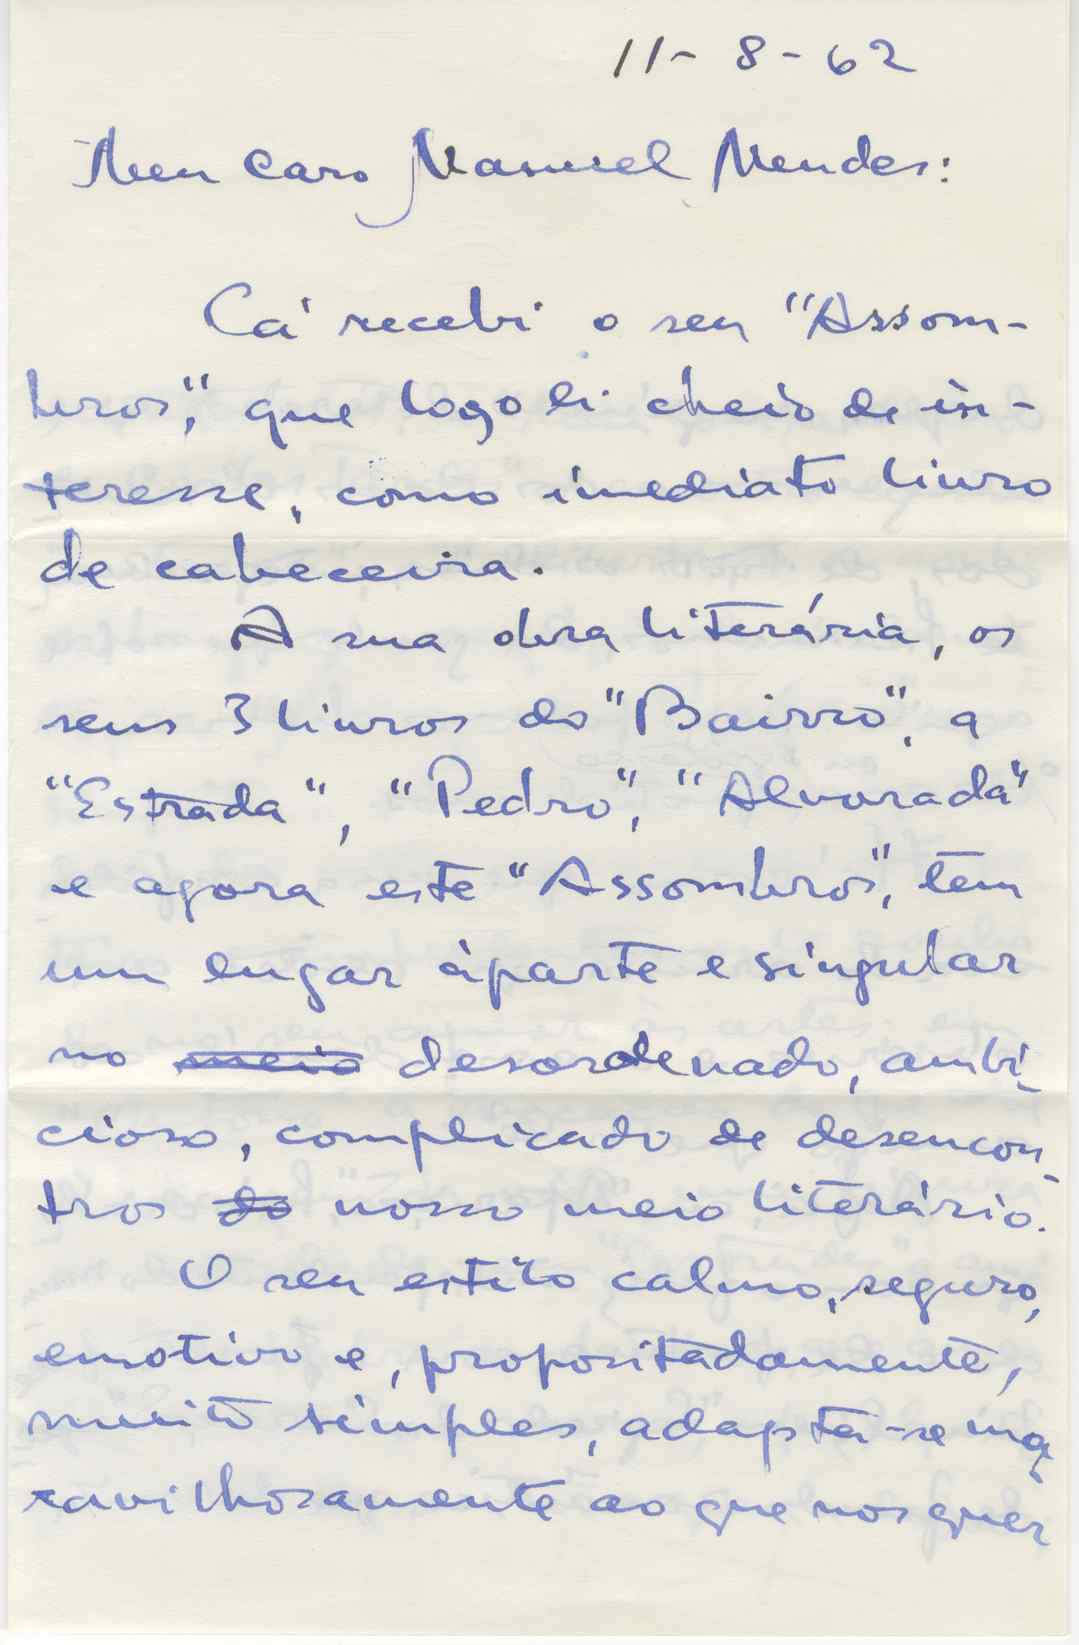 11- 8- 62
Meu Caro Manuel Mendes:
Cá recebi o seu "Assom-
bros", que logo li cheio de in-
teresse, como imediato livro
de cabeceira.
A sua obra literária, os
seus 3 livros do "Bairro", a
"Estrada", "Pedro", "Alvorada"
e agora este "Assombros", têm
um lugar àparte e singular
no meio desordenado, ambi-
cioso, complicado de desencon-
tros do nosso meio literário.
O seu estilo calmo, seguro,
emotivo e, propositadamente,
muito simples, adapta-se ma-
ravilhosamente ao que nos quer